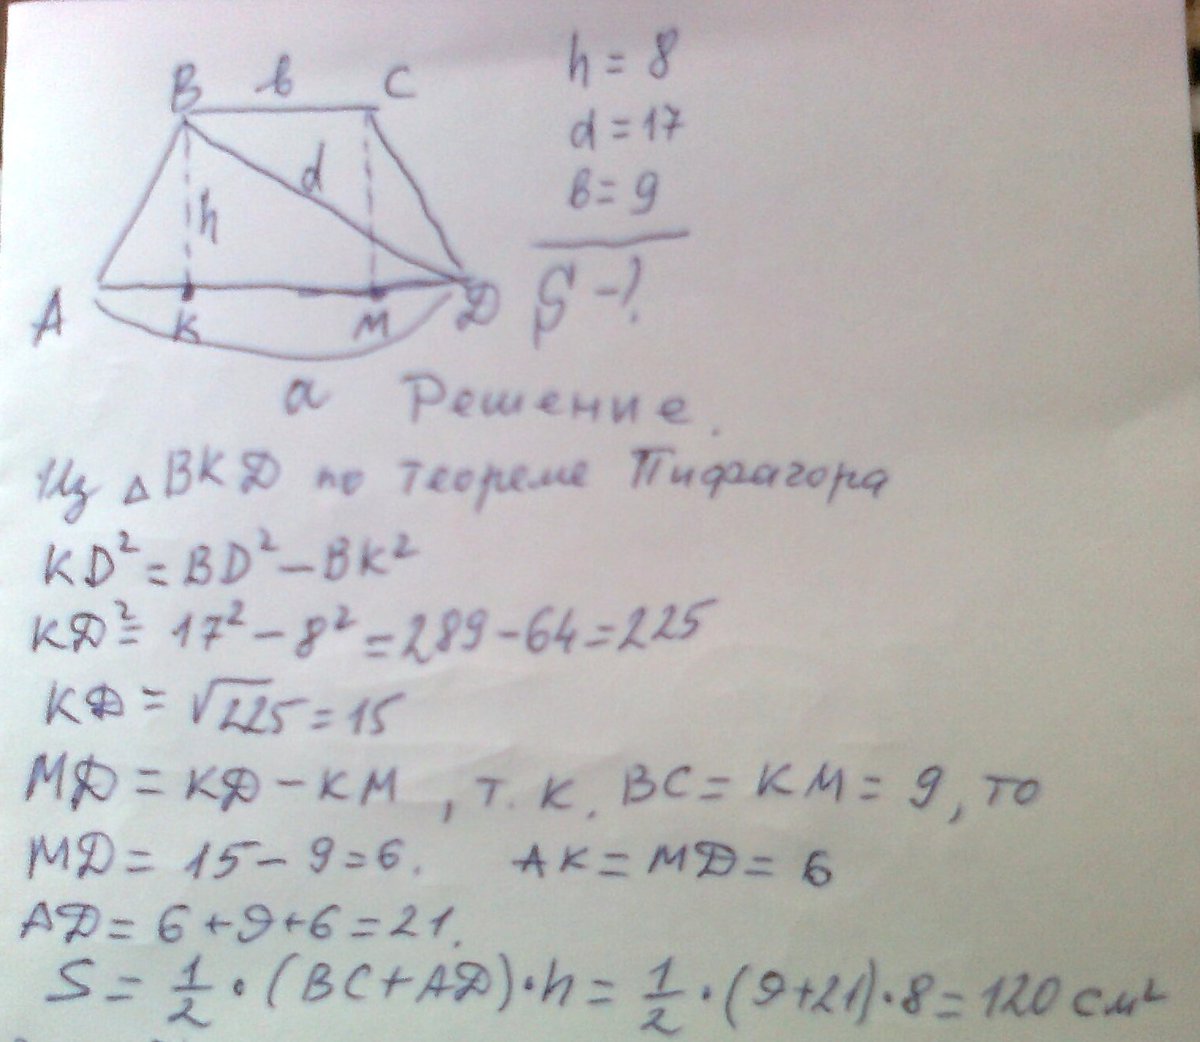 B в C
h = 8
d = 17
в = 9
d
h
A K M D
S - ?
a Решение.
Из △ BKD по теореме Пифагора
KD² = BD² - BK²
KD² = 17² - 8² = 289 - 64 = 225
KD = √225 = 15
MD = KD - KM, т.к. BC = KM = 9, то
MD = 15 - 9 = 6. AK = MD = 6
AD = 6 + 9 + 6 = 21.
S = 1/2 · (BC + AD) · h = 1/2 · (9 + 21) · 8 = 120 см²